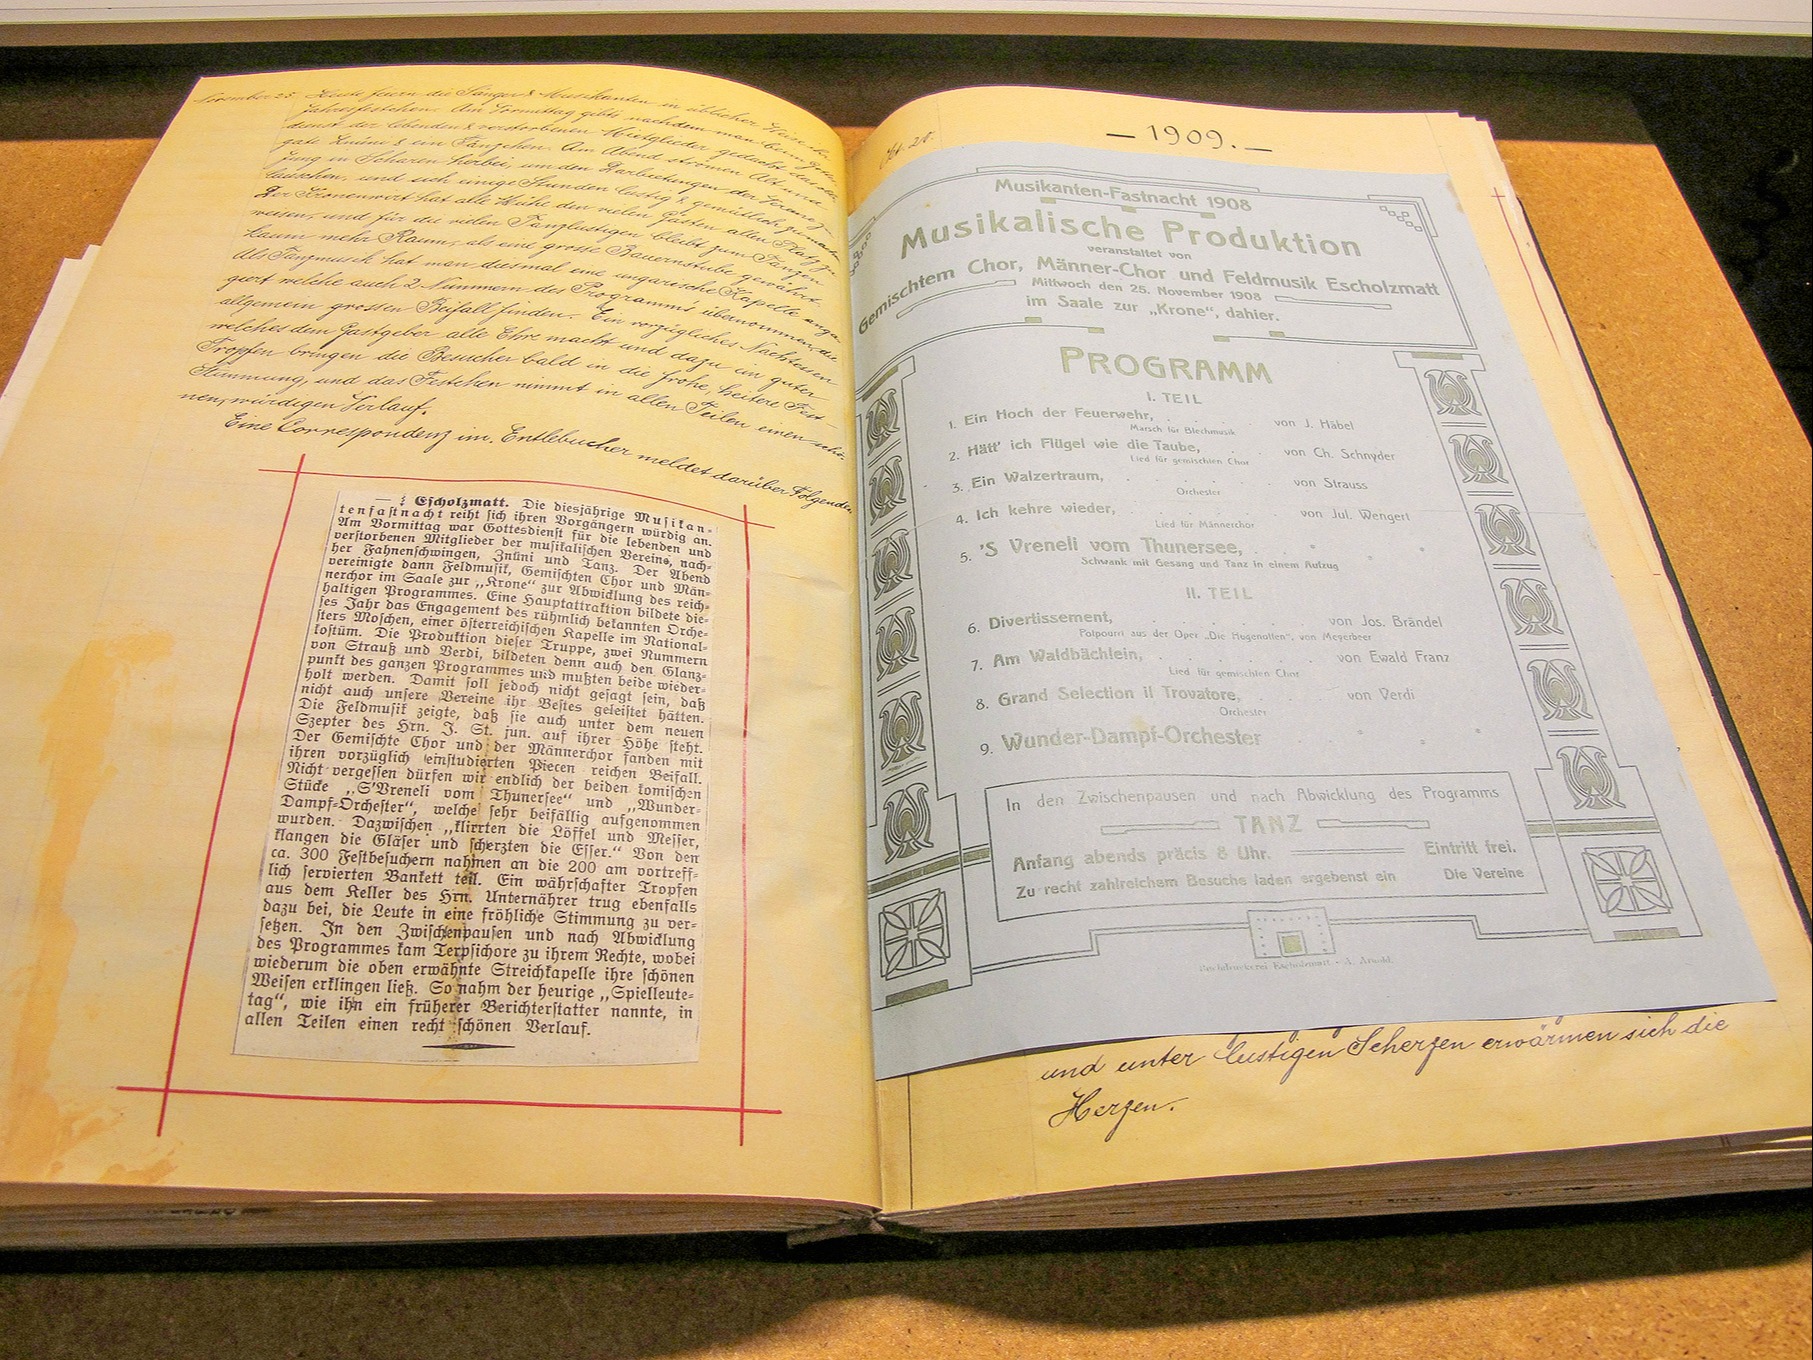 November 25. Heute feiern die Sänger & Musikanten in üblicher Weise ihr
Jahresfestchen. Am Vormittag gibts nachdem man beim Gottes-
dienst der lebenden & verstorbenen Mitglieder gedacht das obli-
gate Znüni & ein Tänzchen. Am Abend strömen Alt und
Jung in Scharen herbei, um den Darbietungen der Vereine zu
lauschen, und sich einige Stunden lustig & gemütlich zu machen
Der Kronenwirt hat alle Mühe den vielen Gästen allen Platz zu
weisen, und für die vielen Tanzlustigen bleibt zum Tanzen
kaum mehr Raum, als eine grosse Bauernstube gewährt.
Als Tanzmusik hat man diesmal eine ungarische Kapelle enga-
giert welche auch 2 Nummern des Programms übernommen, die
allgemein grossen Beifall finden. Ein vorzügliches Nachtessen
welches dem Gastgeber alle Ehre macht und dazu ein guter
Tropfen bringen die Besucher bald in die frohe, heitere Fest-
stimmung, und das Festchen nimmt in allen Teilen einen schö-
nen, würdigen Verlauf.
Eine Correspondenz im Entlebucher meldet darüber Folgendes
— ⁝ Escholzmatt. Die diesjährige Musikan-
tenfastnacht reiht sich ihren Vorgängern würdig an.
Am Vormittag war Gottesdienst für die lebenden und
verstorbenen Mitglieder der musikalischen Vereine, nach-
her Fahnenschwingen, Znüni und Tanz. Der Abend
vereinigte dann Feldmusik, Gemischten Chor und Män-
nerchor im Saale zur „Krone“ zur Abwicklung des reich-
haltigen Programmes. Eine Hauptattraktion bildete die-
ses Jahr das Engagement des rühmlich bekannten Orche-
sters Moschen, einer österreichischen Kapelle im National-
kostüm. Die Produktion dieser Truppe, zwei Nummern
von Strauß und Verdi, bildeten denn auch den Glanz-
punkt des ganzen Programmes und mußten beide wieder-
holt werden. Damit soll jedoch nicht gesagt sein, daß
nicht auch unsere Vereine ihr Bestes geleistet hätten.
Die Feldmusik zeigte, daß sie auch unter dem neuen
Szepter des Hrn. J. St. jun. auf ihrer Höhe steht.
Der Gemischte Chor und der Männerchor fanden mit
ihren vorzüglich einstudierten Piecen reichen Beifall.
Nicht vergessen dürfen wir endlich der beiden komischen
Stücke „S'Vreneli vom Thunersee“ und „Wunder-
Dampf-Orchester“, welche sehr beifällig aufgenommen
wurden. Dazwischen „klirrten die Löffel und Messer,
klangen die Gläser und scherzten die Esser.“ Von den
ca. 300 Festbesuchern nahmen an die 200 am vortreff-
lich servierten Bankett teil. Ein währschafter Tropfen
aus dem Keller des Hrn. Unternährer trug ebenfalls
dazu bei, die Leute in eine fröhliche Stimmung zu ver-
setzen. In den Zwischenpausen und nach Abwicklung
des Programmes kam Terpsichore zu ihrem Rechte, wobei
wiederum die oben erwähnte Streichkapelle ihre schönen
Weisen erklingen ließ. So nahm der heurige „Spielleute-
tag“, wie ihn ein früherer Berichterstatter nannte, in
allen Teilen einen recht schönen Verlauf.
— 1909. —
Oct. 20.
Musikanten-Fastnacht 1908
Musikalische Produktion
veranstaltet von
Gemischtem Chor, Männer-Chor und Feldmusik Escholzmatt
Mittwoch den 25. November 1908
im Saale zur „Krone“, dahier.
PROGRAMM
I. TEIL
1. Ein Hoch der Feuerwehr, . . von J. Häbel
Marsch für Blechmusik
2. Hätt' ich Flügel wie die Taube, . . von Ch. Schnyder
Lied für gemischten Chor
3. Ein Walzertraum, . . . von Strauss
Orchester
4. Ich kehre wieder, . . . von Jul. Wengert
Lied für Männerchor
5. 'S Vreneli vom Thunersee, . . . .
Schwank mit Gesang und Tanz in einem Aufzug
II. TEIL
6. Divertissement, . . . von Jos. Brändel
Potpourri aus der Oper „Die Hugenotten“, von Megerbeer
7. Am Waldbächlein, . . . von Ewald Franz
Lied für gemischten Chor
8. Grand Selection il Trovatore, . . von Verdi
Orchester
9. Wunder-Dampf-Orchester . . .
In den Zwischenpausen und nach Abwicklung des Programms
TANZ
Anfang abends präcis 8 Uhr. Eintritt frei.
Zu recht zahlreichem Besuche laden ergebenst ein Die Vereine
Buchdruckerei Escholzmatt - A. Arnold.
und unter lustigen Scherzen erwärmen sich die
Herzen.